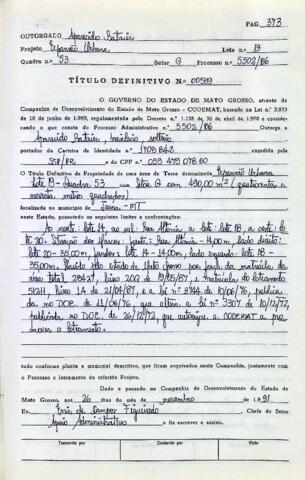 PAG. 373
OUTORGADO Aparecido
Projeto Expansão Urbana Lote n.º 19
Quadra n.º 53 Setor G Processo 5502/86
TÍTULO DEFINITIVO Nº 00599
O GOVERNO DO ESTADO DE MATO GROSSO, através da
Companhia de Desenvolvimento do Estado de Mato Grosso - CODEMAT, baseado na Lei n.º 2.933
de 10 de junho de 1969, regulamentada pelo Decreto n.º 1.138 de 30 de abril de 1970 e considerando
o que consta do Processo Administrativo n.º 5502/86 Outorga a
Aparecido brasileiro, solteiro
portador da Carteira de Identidade n.º expedida pela
SSP/PR e do CPF n.º 059 479 078 60
O Título Definitivo de Propriedade de uma área de Terra denominada Expansão Urbana
Lote 19 - Quadra 53 Setor G com 490,00 m² (quatrocentos e
noventa metros quadrados)
localizada no município de MT
neste Estado, possuindo os seguintes limites e confrontações:
Ao norte: lote 14, ao sul: Rua a leste: lote 18, a oeste: lo
te 20. Situação dos frente: Rua 14,00m, lado direito:
lote 20 - 35,00m, fundos: lote 14 - 14,00m, lado esquerdo: lote 18 -
35,00m. pelo estado de Mato Grosso por da matrícula da
área total 28427, livro matrícula do loteamento
livro 1A de 21/04/87, e a Lei nº 3744 de 10/06/76, publica
da no D.O.E. de 11/06/76, que altera a Lei nº 3307 de 10/12/72,
publicada no D.O.E. de 26/12/72, que autoriza a CODEMAT a pro
mover o loteamento.
tudo conforme planta e memorial descritivo, que ficam arquivados nesta Companhia, juntamente com
o Processo e loteamento do referido Projeto.
Dado e passado na Companhia de Desenvolvimento do Estado de
Mato Grosso, aos 26 dias do mês de novembro de 1991
Eu, de Campos Figueiredo Chefe do Setor
Apoio Administrativo o fiz escrever e assino.
Transcrito por Conferido por Visto